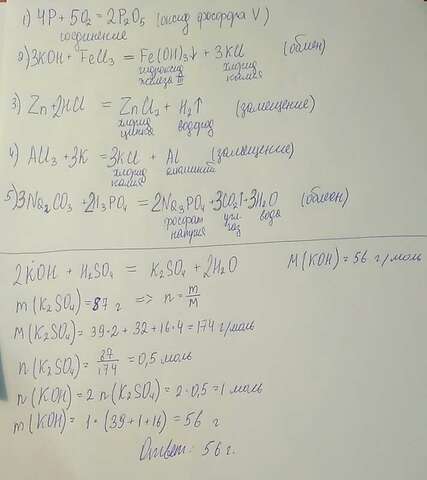 1) 4P + 5O₂ = 2P₂O₅ (оксид фосфора V)
соединение
2) 3KOH + FeCl₃ = Fe(OH)₃↓ + 3KCl (обмен)
гидроксид железа III хлорид калия
3) Zn + 2HCl = ZnCl₂ + H₂↑ (замещение)
хлорид цинка водород
4) AlCl₃ + 3K = 3KCl + Al (замещение)
хлорид калия алюминий
5) 3Na₂CO₃ + 2H₃PO₄ = 2Na₃PO₄ + 3CO₂↑ + 3H₂O (обмен)
фосфат натрия угл. газ вода
2KOH + H₂SO₄ = K₂SO₄ + 2H₂O M(KOH) = 56 г/моль
m(K₂SO₄) = 87 г => n = m/M
M(K₂SO₄) = 39·2 + 32 + 16·4 = 174 г/моль
n(K₂SO₄) = 87/174 = 0,5 моль
n(KOH) = 2 n(K₂SO₄) = 2·0,5 = 1 моль
m(KOH) = 1·(39+1+16) = 56 г
Ответ: 56 г.